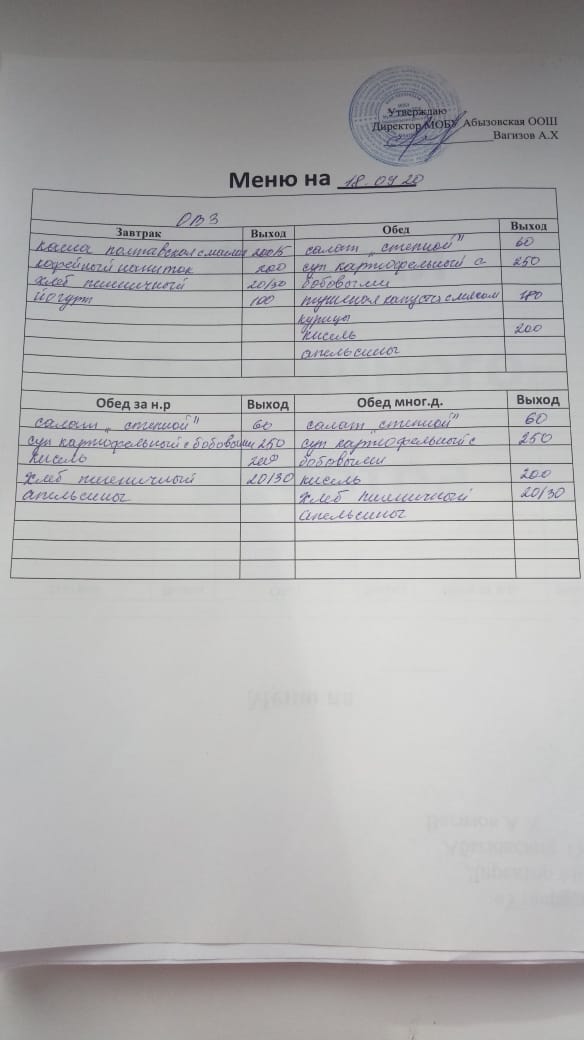 Утверждаю
Директор МОБУ Абызовская ООШ
Вагизов А.Х
Меню на 18.09.20
ОВЗ
Завтрак Выход Обед Выход
Каша полтавская с маслом 200/5 салат „степной" 60
кофейный напиток 200 суп картофельный с 250
хлеб пшеничный 20/30 бобовыми
йогурт 100 тушеная капуста с мясом 180
курицы
кисель 200
апельсины
Обед за н.р Выход Обед мног.д. Выход
салат „степной" 60 салат „степной" 60
суп картофельный с бобовыми 250 суп картофельный с 250
кисель 200 бобовыми
хлеб пшеничный 20/30 кисель 200
апельсины хлеб пшеничный 20/30
апельсины